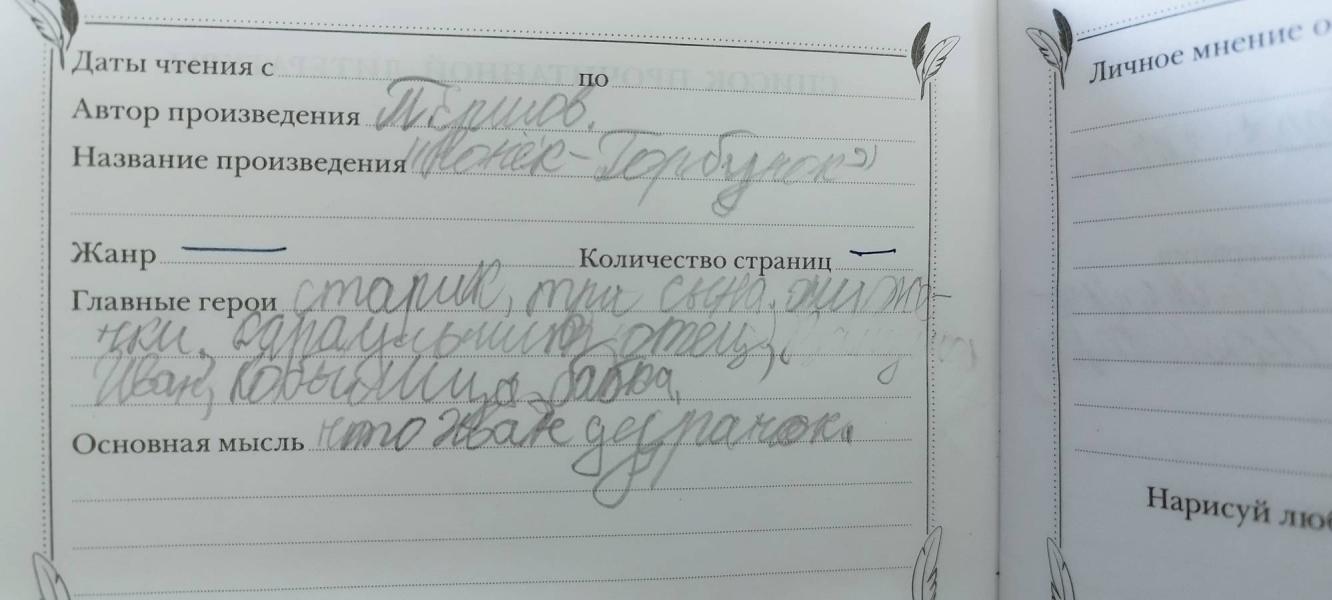 Даты чтения с по
Автор произведения П.Ершов.
Название произведения "Конёк-Горбунок"
Жанр — Количество страниц —
Главные герои старик, три сына,
нки, караульший отец,
Иван, кобылица, бабка,
Основная мысль что Иван дедрачок.
Личное мнение о
Нарисуй люб